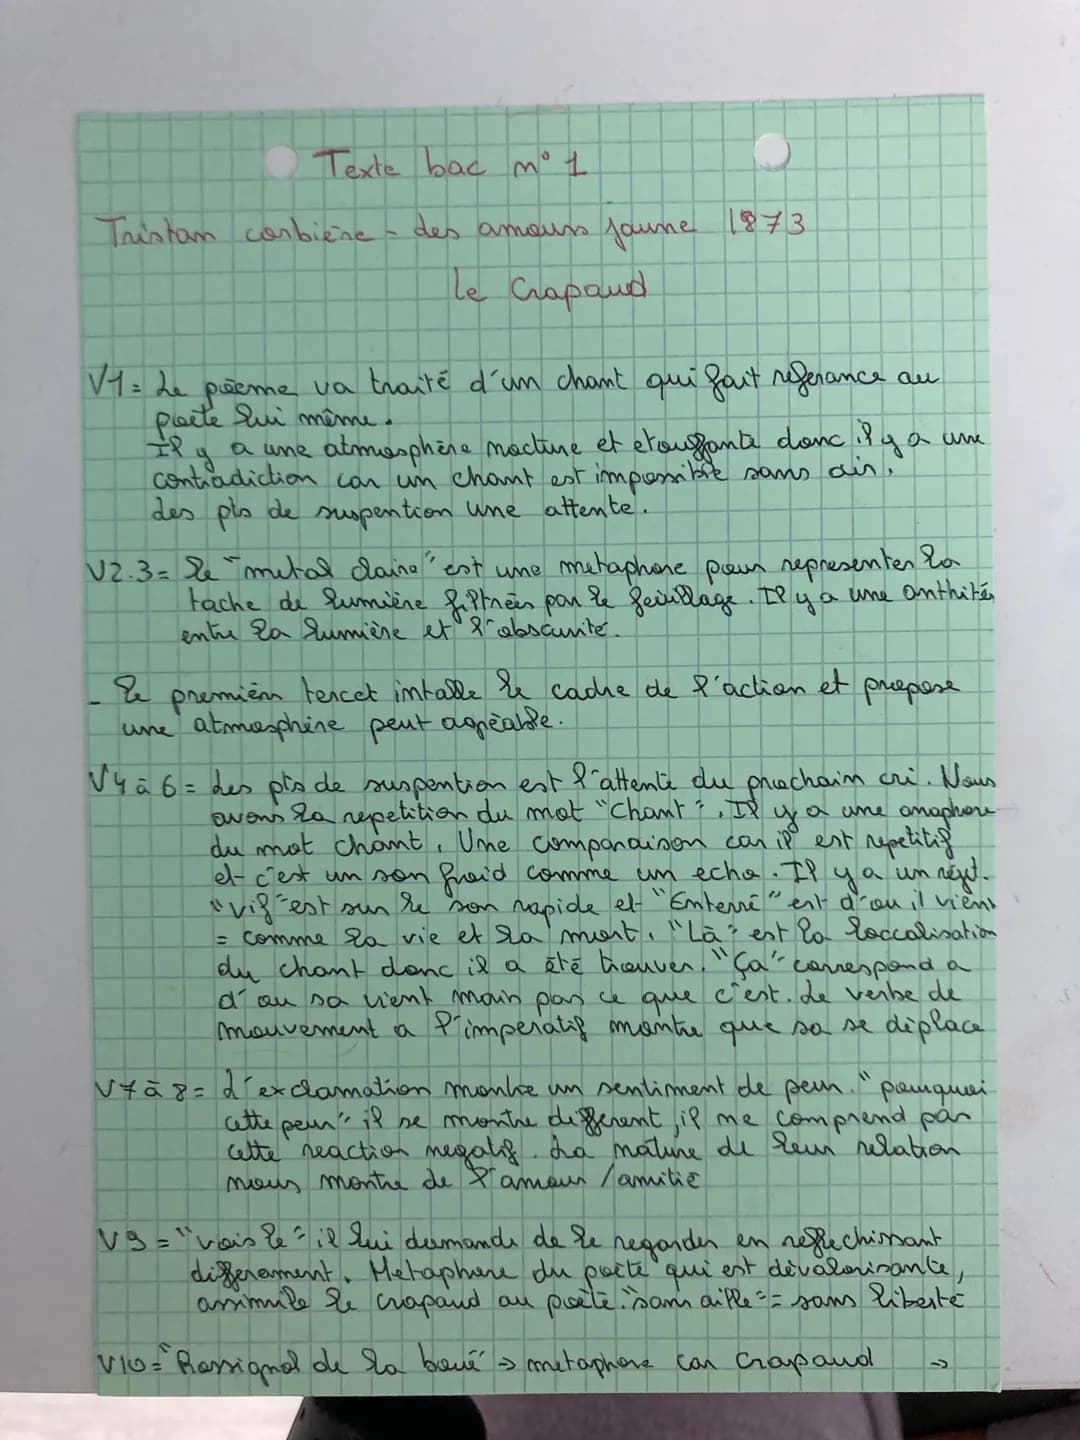 Texte bac n° 1
Tristan corbière - des amours jaune 1873
Le Crapaud
V1 = Le poème va traité d'un chant qui fait referance au
poète lui même.
Il y a une atmosphère nocture et etouffante donc il y a une
contradiction car un chant est impossible sans air.
des pts de suspention une attente.
V2.3 = Le "metal claire" est une metaphore pour representer la
tache de lumière filtrées par le feuillage. Il y a une anthités
entre la lumière et l'obscurité.
- Le premièr tercet intalle le cadre de l'action et propose
une atmosphère peut agréable.
V4 à 6 = des pts de suspention est l'attente du prochain cri. Nous
avons la repetition du mot "Chant". Il y a une anaphore
du mot chant. Une comparaison car il est repetitif
et c'est un son froid comme un echo. Il y a un rejet.
"vif" est sur le son rapide et "Enterré" est d'ou il viens
= comme la vie et la mort. "Là" est la loccalisation
du chant donc il a été trouver. "Ça" correspond a
d'ou sa vient main pas ce que c'est. Le verbe de
mouvement a l'imperatif montre que sa se déplace
V7 à 8 = L'exclamation montre un sentiment de peur. "pourquoi
cette peur" il se montre different, il ne comprend pas
cette reaction negatif. La nature de leur relation
nous montre de l'amour / amitié
V9 = "vois le" il lui demande de le regarder en reflechissant
differament. Metaphore du poète qui est dévalorisante,
assimile le crapaud au poète. "sans aille" = sans liberté
V10 = "Rossignol de la boue" → metaphore car Crapaud →